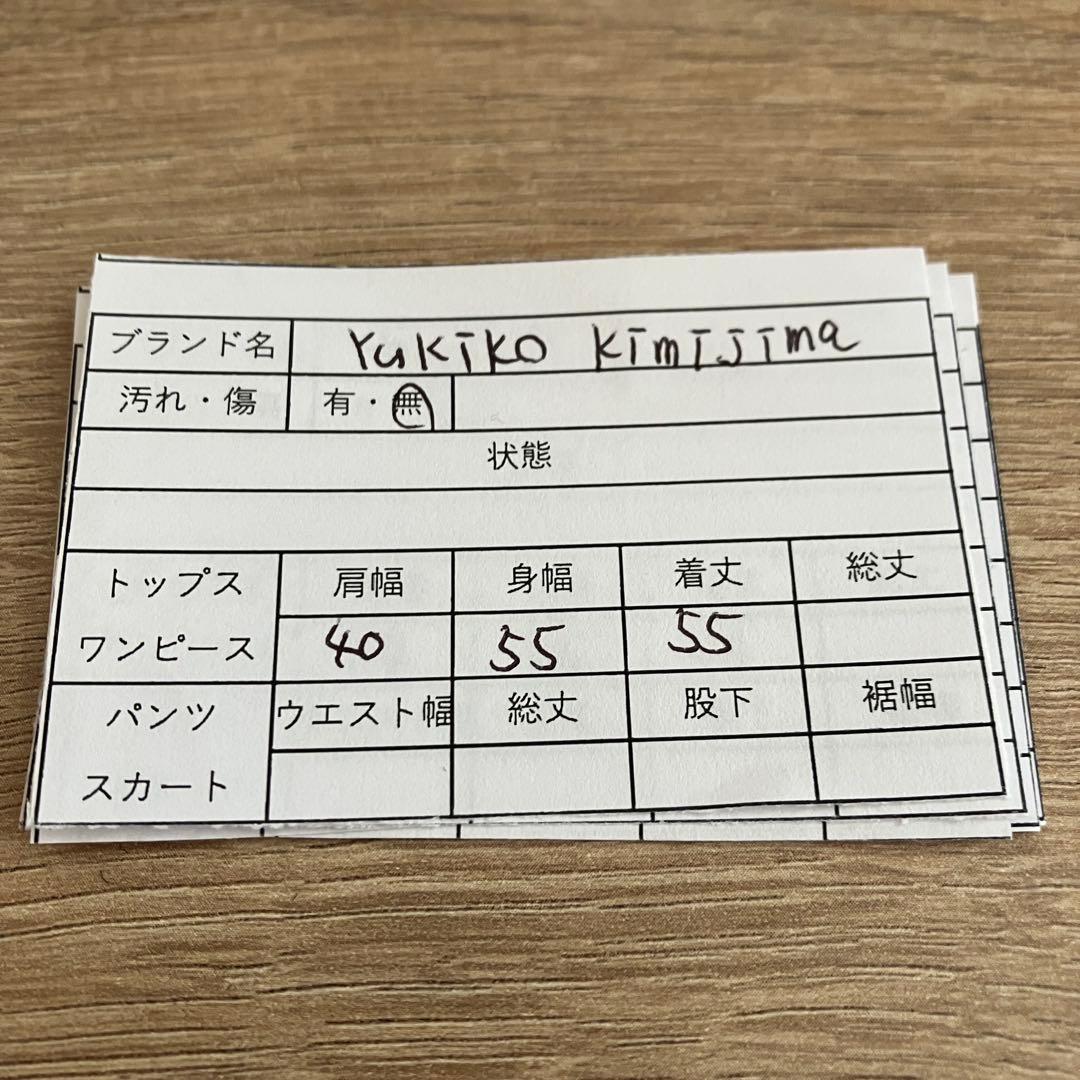 ブランド名 Yukiko kimijima
汚れ・傷 有・無
状態
トップス 肩幅 身幅 着丈 総丈
ワンピース 40 55 55
パンツ ウエスト幅 総丈 股下 裾幅
スカート